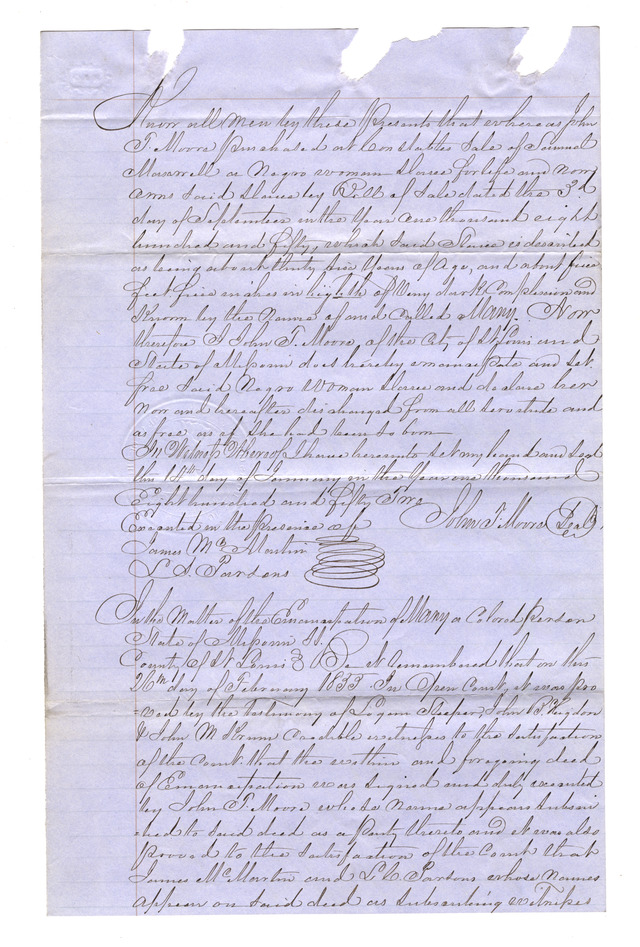 Know all Men by these Presents that whereas John
T. Moore purchased at Constables Sale of Samuel
Maxwell a Negro woman Slave for life and now
owns Said Slave by Bill of Sale dated the 3rd
day of September in the Year one thousand eight
hundred and fifty, which Said Slave is described
as being about thirty five Years of Age, and about five
feet five inches in heighth of Very dark Complexion and
Known by the Name of and Called Mary. Now
therefore I John T. Moore, of the City of St Louis and
State of Missouri does hereby emancipate and Set
free Said Negro Woman Slave and declare her
Now and hereafter discharged from all servitude and
as free as if She had been so born
In Witness Whereof I have hereunto Set my hand and Seal
this 14th day of January in the Year one thousand
Eight hundred and fifty Two
Executed in the Presence of John T. Moore Seal
James Mc Martin
L. A. Parsons
In the Matter of the Emancipation of Mary a Colored Person
State of Missouri SS.
County of St Louis Be it remembered that on this
26th day of February 1853. In Open Court, it was pro
=ved by the testimony of Logan Sleeper, John B. Higdon
& John M Krum Credible witnesses to the Satisfaction
of the Court that the within and foregoing deed
of Emancipation was Signed and duly executed
by John T. Moore whose name appears Subscri
=bed to Said deed as a Party thereto and it was also
proved to the Satisfaction of the Court that
James Mc Martin and L. C. Parsons whose names
appear on Said deed as Subscribing witnesses